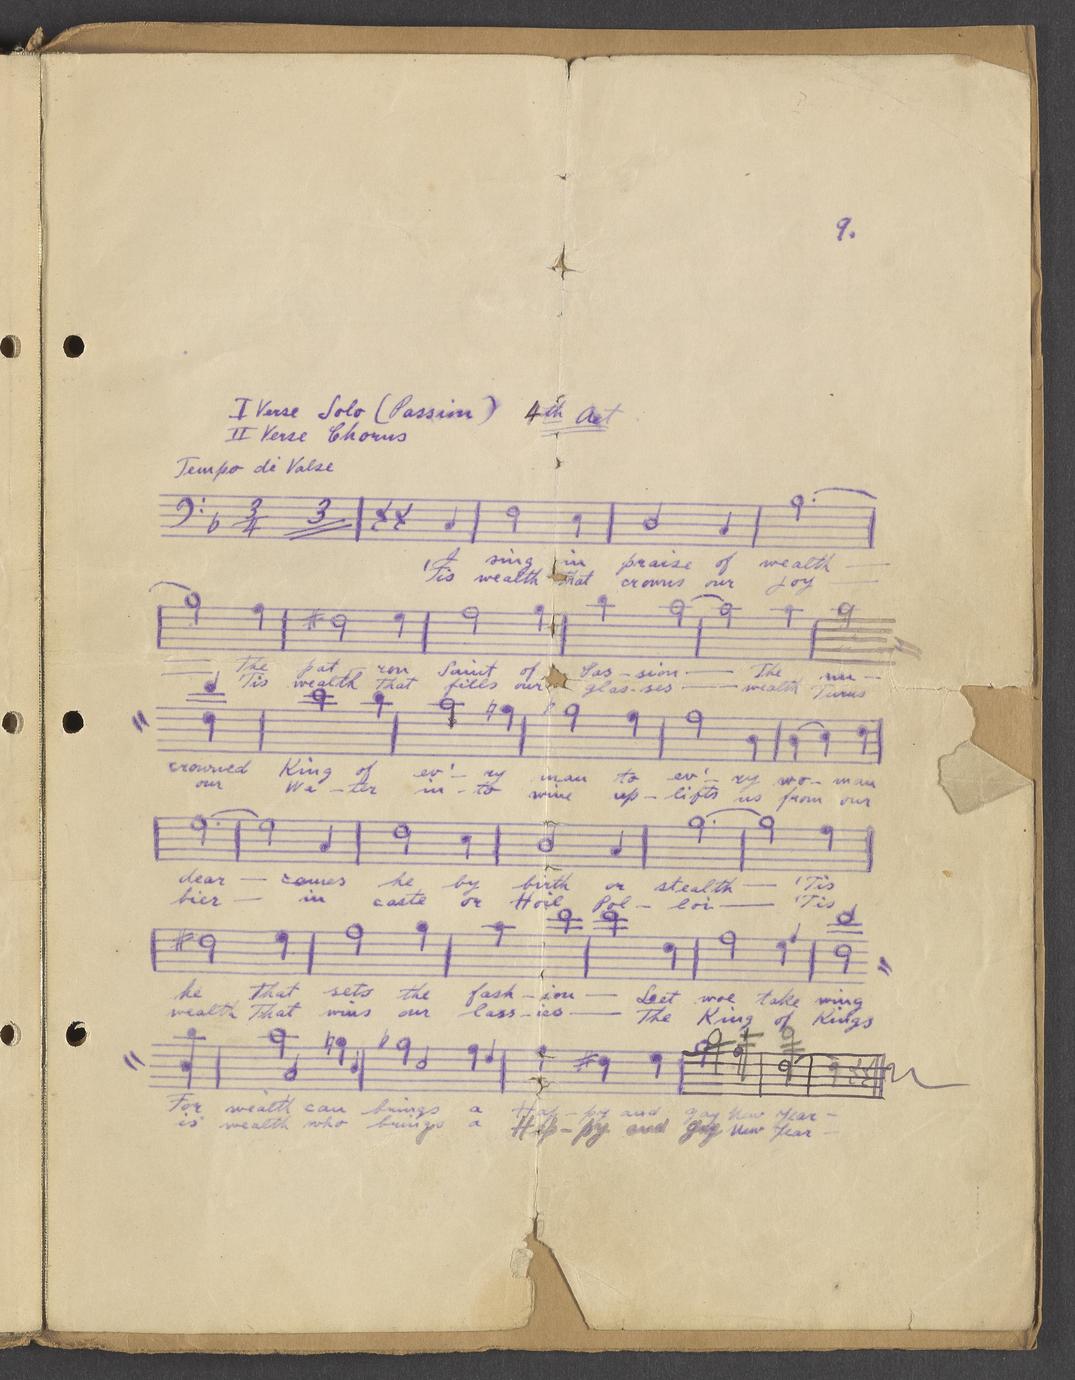 9.
I Verse Solo (Passion) 4th Act
II Verse Chorus
Tempo di Valse
3 4 3
I sing in praise of wealth —
'Tis wealth that crowns our joy —
The pat - ron Saint of Pas - sion — The un -
'Tis wealth that fills our glas - ses — wealth Turns
crowned King of ev' - ry man to ev' - ry wo - man
our Wa - ter in - to wine up - lifts us from our
dear — comes he by birth or stealth — 'Tis
bier — in caste or Hoi Pol - loi — 'Tis
he That sets the fash - ion — Let woe take wing
wealth That wins our lass - ies — The King of Kings
For wealth can brings a Hap - py and gay New Year —
is wealth who brings a Hap - py and gay New Year —